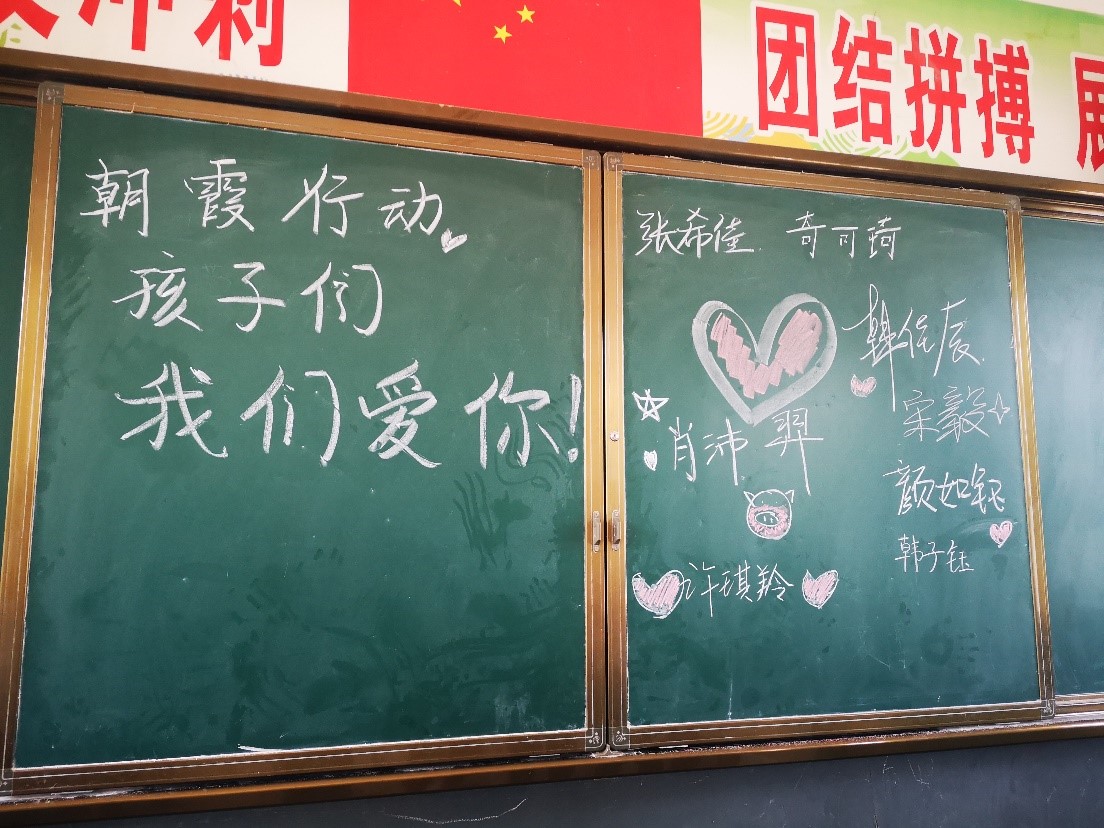 冲刺
团结拼搏
朝霞行动
孩子们
我们爱你!
张希佳 奇可琦
韩佳辰
宋毅
肖沛羿
颜如钰
韩子钰
许琪羚